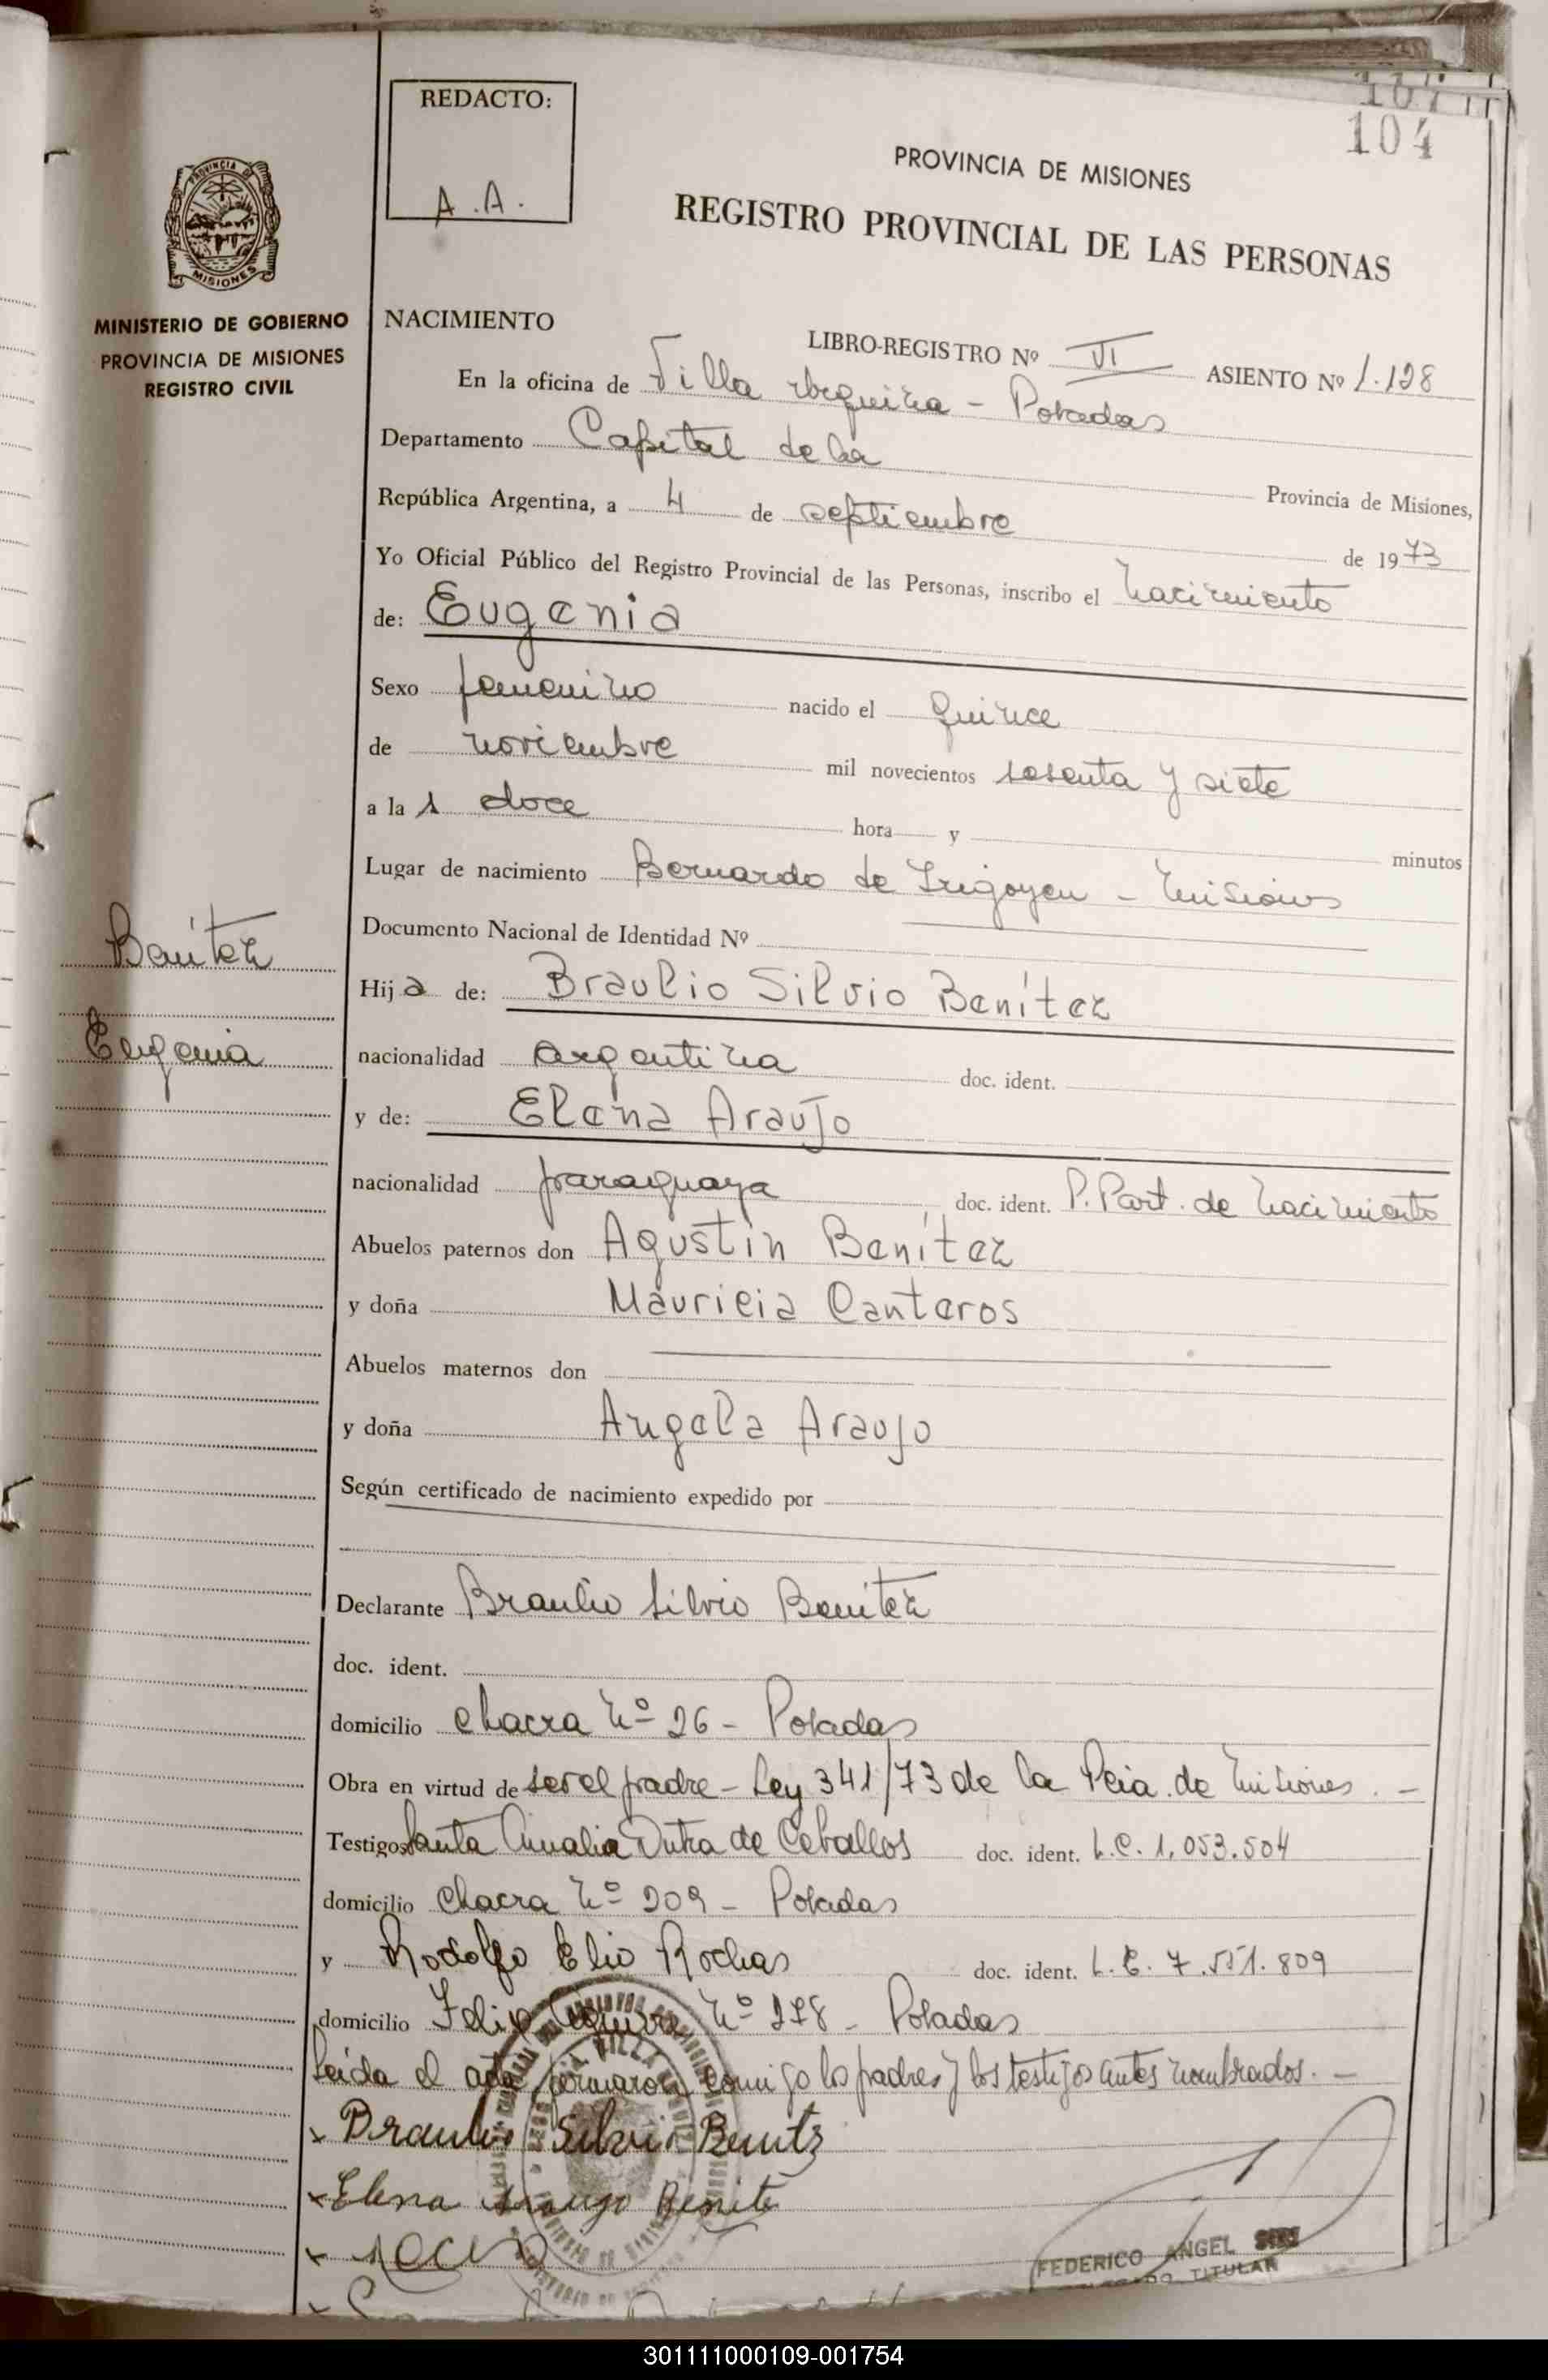 107
104
REDACTO:
A.A.
PROVINCIA DE MISIONES
REGISTRO PROVINCIAL DE LAS PERSONAS
PROVINCIA DE
MISIONES
MINISTERIO DE GOBIERNO
PROVINCIA DE MISIONES
REGISTRO CIVIL
NACIMIENTO
LIBRO-REGISTRO Nº VI ASIENTO Nº 1.128
En la oficina de Villa Urquiza - Posadas
Departamento Capital de la Provincia de Misiones,
República Argentina, a 4 de septiembre de 1973
Yo Oficial Público del Registro Provincial de las Personas, inscribo el nacimiento
de: Eugenia
Sexo femenino nacido el quince
de noviembre mil novecientos sesenta y siete
a la s doce hora y minutos
Lugar de nacimiento Bernardo de Irigoyen - Misiones
Documento Nacional de Identidad Nº
Benítez
Eugenia
Hija de: Braulio Silvio Benítez
nacionalidad argentina doc. ident.
y de: Elena Araujo
nacionalidad paraguaya doc. ident. P. Part. de nacimiento
Abuelos paternos don Agustín Benítez
y doña Mauricia Canteros
Abuelos maternos don
y doña Angela Araujo
Según certificado de nacimiento expedido por
Declarante Braulio Silvio Benítez
doc. ident.
domicilio chacra Nº 26 - Posadas
Obra en virtud de ser el padre - Ley 341/73 de la Pcia. de Misiones. -
Testigos Santa Amalia Dutra de Ceballos doc. ident. L.C. 1.053.504
domicilio Chacra Nº 209 - Posadas
y Rodolfo Elio Rochas doc. ident. L.E. 7.551.809
domicilio Felip Nº 278 - Posadas
Leída el acta, firmaron conmigo los padres y los testigos antes nombrados. -
x Braulio Silvio Benitz
x Elena Araujo Benite
FEDERICO ANGEL
TITULAR
301111000109-001754